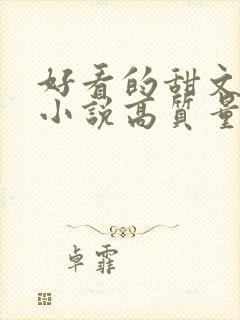 好看的甜文
小说高质量
卓霏